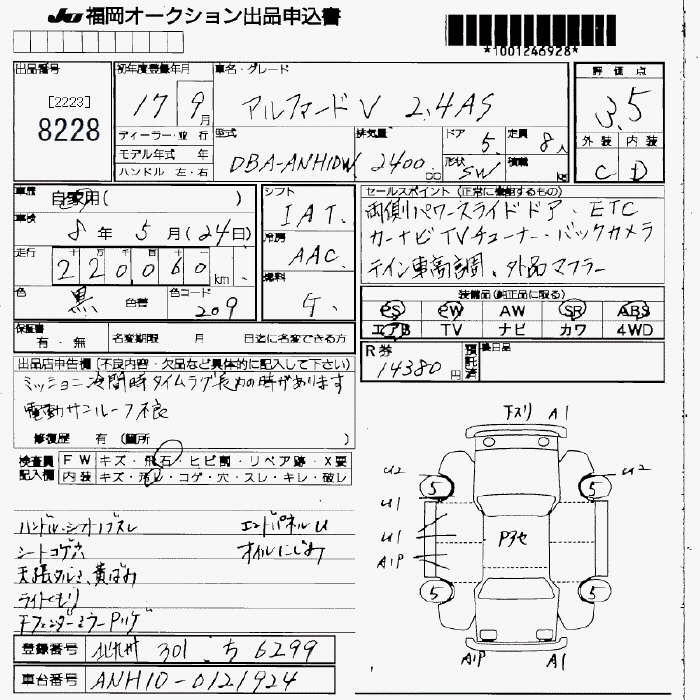 JU 福岡オークション出品申込書
*1001246928*
出品番号
[2223]
8228
初年度登録年月
17 9月
車名・グレード
アルファードV 2.4AS
評価点
3.5
外装 内装
C D
ディーラー・並行
モデル年式 年
ハンドル 左・右
型式
DBA-ANH10W
排気量
2400 cc
ドア 5
形状 SW
定員 8人
積載 kg
車歴 自家用( )
車検 8年 5月(24日)
走行 十 万 千 百 十 一
220060 km
色 黒 色替
色コード 209
シフト
IAT.
冷房
AAC
燃料
G.
セールスポイント(正常に機能するもの)
両側パワースライドドア、ETC
カーナビTVチューナー、バックカメラ
テイン車高調、外品マフラー
装備品(純正品に限る)
PS PW AW SR ABS
エアB TV ナビ カワ 4WD
保証書
有・無
名変期限 月 日迄に名変できる方
R券
14380円
預託済
後日品
出品店申告欄(不良内容・欠品など具体的に記入して下さい)
ミッション冷間時タイムラグ長めの時があります
電動サンルーフ不良
修復歴 有(箇所 )
検査員記入欄
FW キズ・飛石・ヒビ割・リペア跡・X要
内装 キズ・汚レ・コゲ・穴・スレ・キレ・破レ
ハンドル・シフトノブスレ エンドパネルU
シートコゲ穴 オイルにじみ
天張タルミ、黄ばみ
ライトくもり
下スリ A1
U2 U2
5 5
U1
U1
A1P
Pヌセ
5 5
A1P A1
登録番号 北九州 301 ち 6299
車台番号 ANH10-0121924